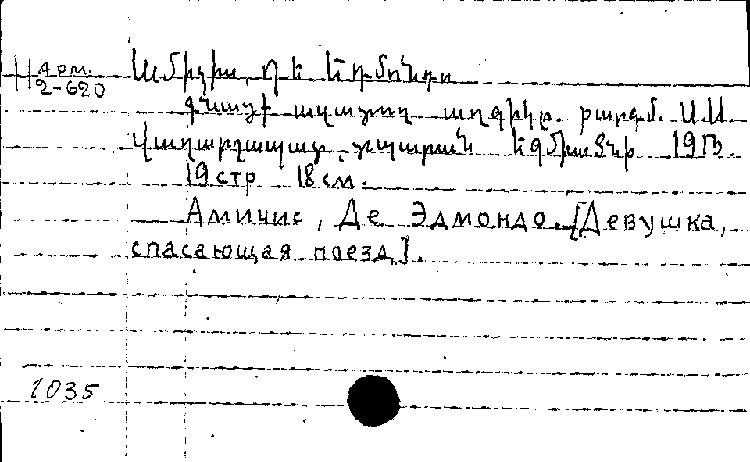 Арм.
2-620
Ամիչիս, Դե Էդմոնդո
գնացք ազատող աղջիկը. թարգմ. Ա.Ա.
Վաղարշապատ, տպարան Էջմիածնի 1913.
19 стр 18 см.
Амичис, Де Эдмондо. [Девушка,
спасающая поезд].
1035